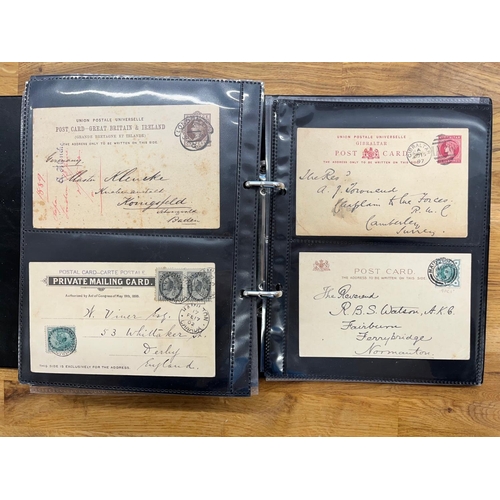 UNION POSTALE UNIVERSELLE
POST CARD-GREAT BRITAIN & IRELAND
(GRANDE BRETAGNE ET IRLANDE)
THE ADDRESS ONLY TO BE WRITTEN ON THIS SIDE.
Germany
Königsfeld
Baden
POSTAL CARD-CARTE POSTALE
PRIVATE MAILING CARD.
Authorized by Act of Congress of May 19th, 1898.
W. Viner Esq.
53 Whittaker St.
Derby
England.
THIS SIDE IS EXCLUSIVELY FOR THE ADDRESS.
UNION POSTALE UNIVERSELLE
GIBRALTAR
POST CARD
THE ADDRESS ONLY TO BE WRITTEN ON THIS SIDE
The Rev.
A. J. Townend
Chaplain to the Forces
R. M. C
Camberley
Surrey.
POST CARD.
THE ADDRESS ONLY TO BE WRITTEN ON THIS SIDE.
The Reverend
R.B.S. Watson, A.K.C.
Fairburn
Ferrybridge
Normanton.